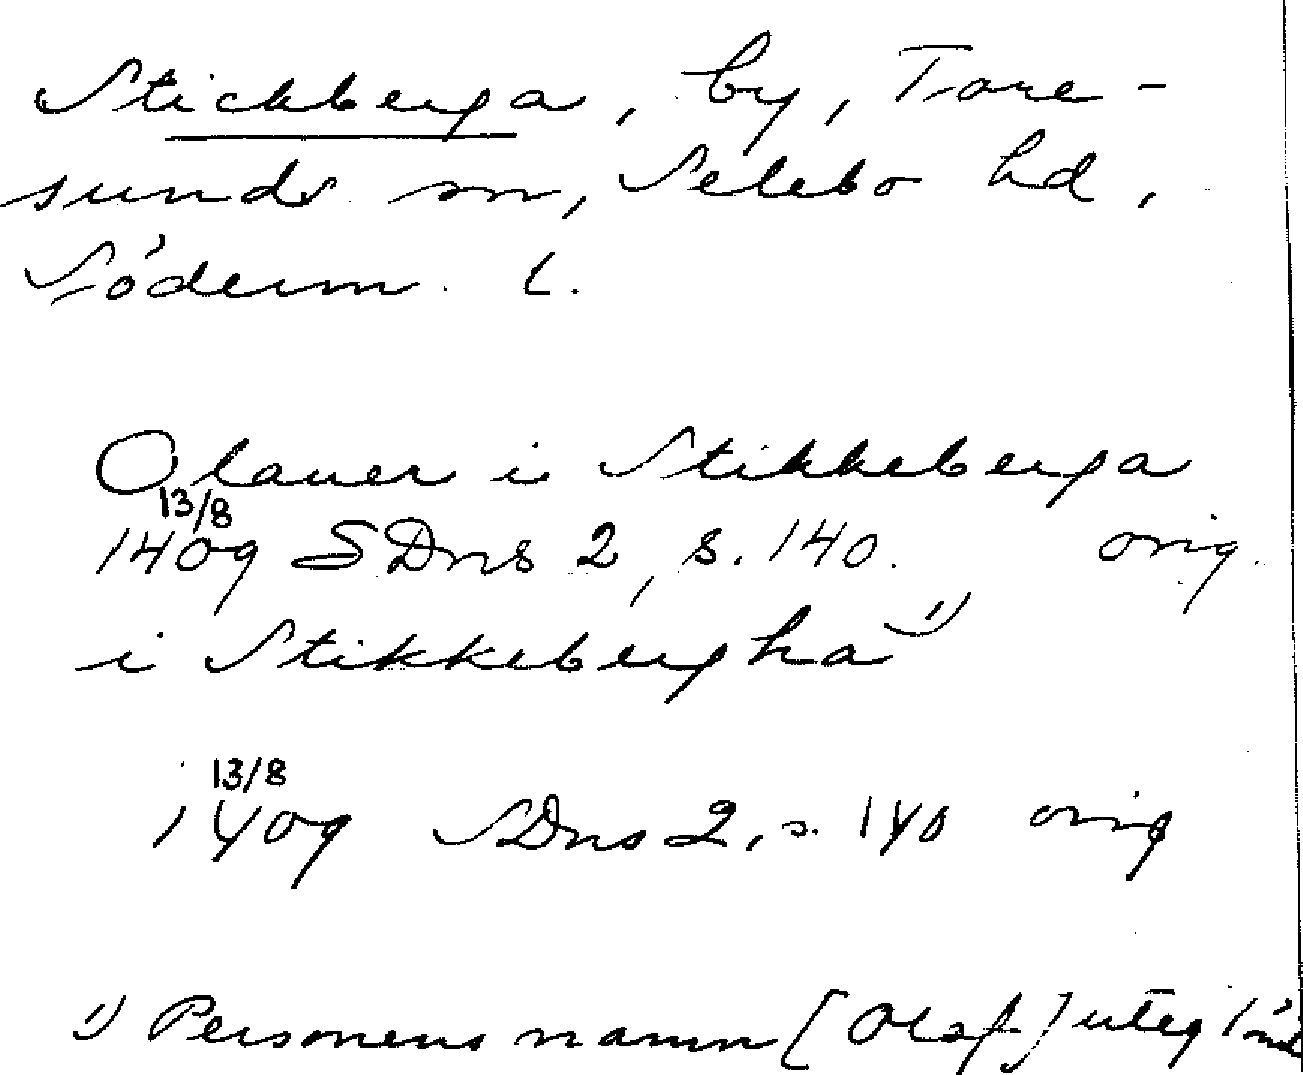 Stickberga, by, Tore-
sunds sn, Selebo hd,
Söderm. l.
Olauer i Stikkeberga
13/8
1409 SDns 2, s. 140. orig.
i Stikkebergha 1)
13/8
1409 SDns 2, s. 140 orig
1) Personens namn [Olaf] uteglömt